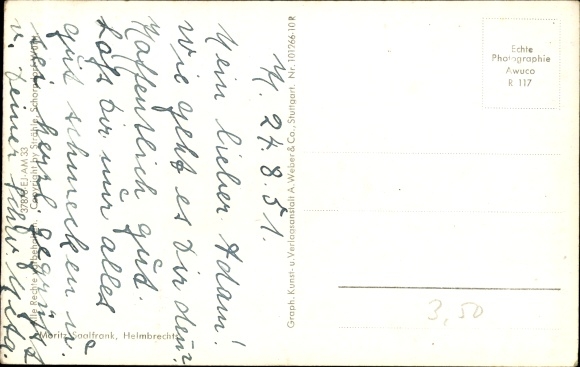 M. 24.8.51.
Mein lieber Adam!
Wie geht es Dir denn?
Hoffentlich gut.
Laß Dir nur alles
gut schmecken u.
sei herzl. gegrüßt
v. Deiner Schw. Meta.
Echte
Photographie
Awuco
R 117
Graph. Kunst- u. Verlagsanstalt A. Weber & Co., Stuttgart, Nr. 101266-10 R
Alle Rechte vorbehalten. Copyright by Strähle, Schorndorf
Moritz Saalfrank, Helmbrechts
3,50